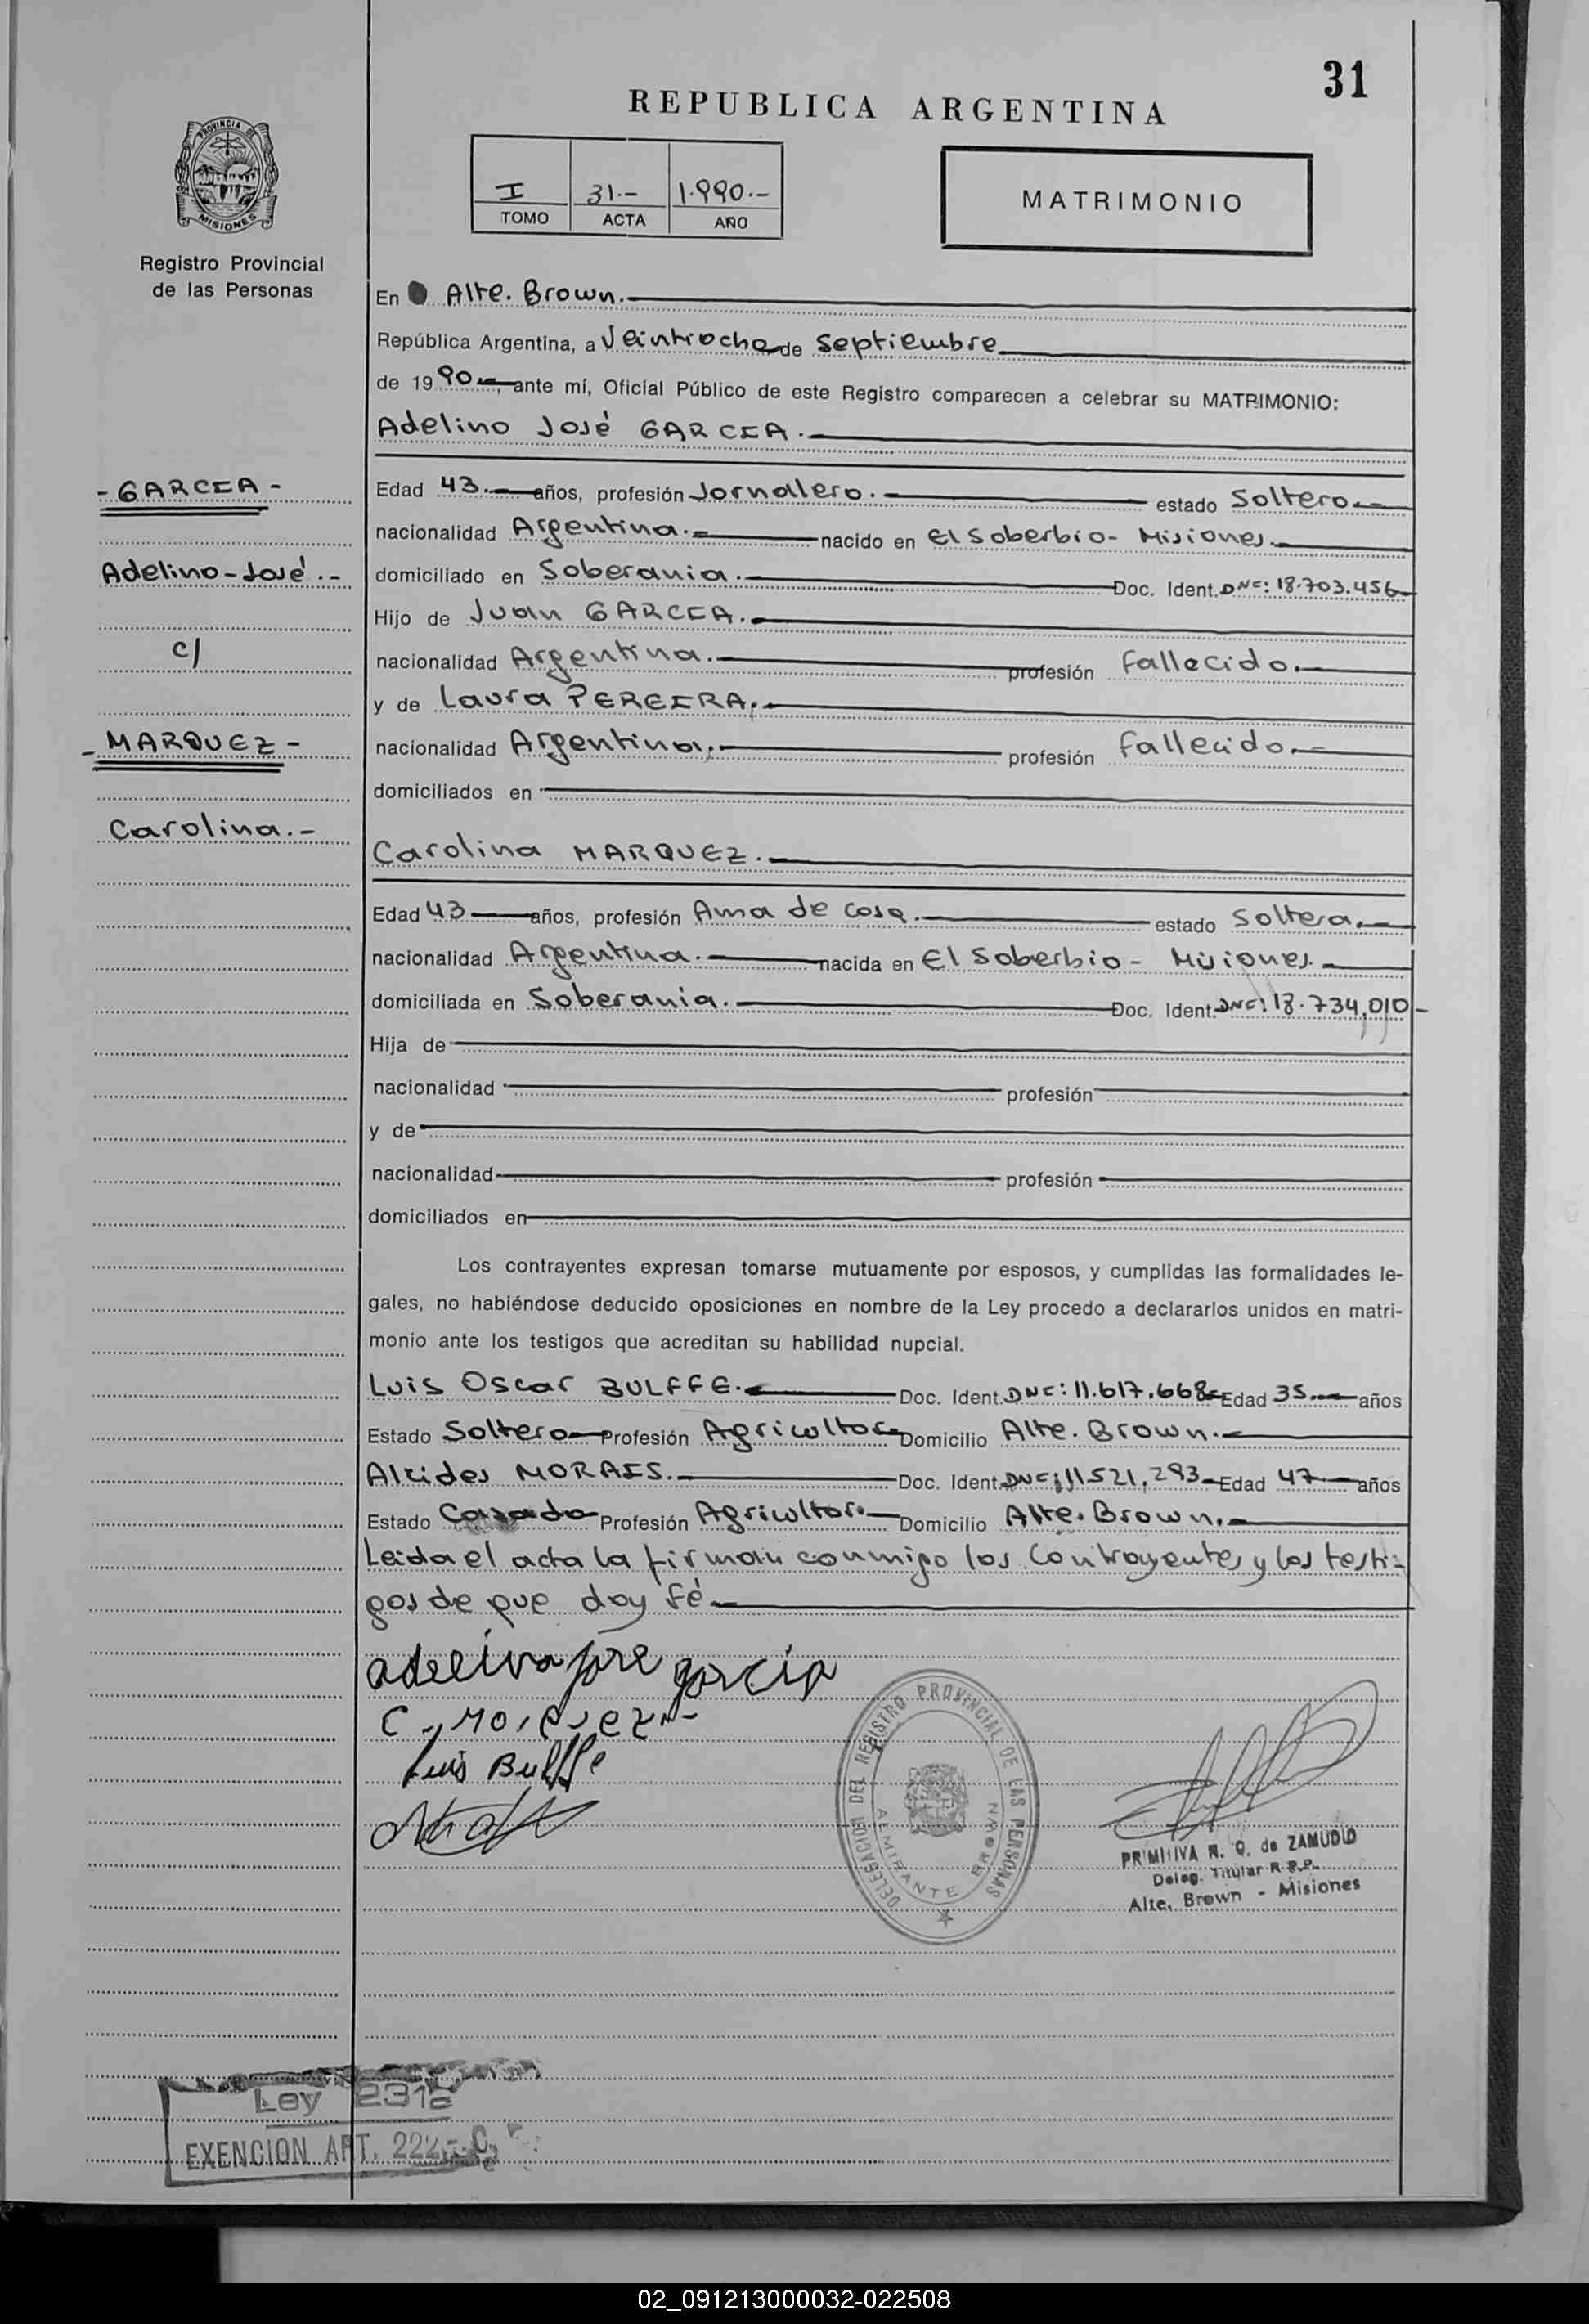 31
REPUBLICA ARGENTINA
PROVINCIA DE
MISIONES
Registro Provincial
de las Personas
I 31.- 1.990.-
TOMO ACTA AÑO
MATRIMONIO
En Alte. Brown.
República Argentina, a Veintiocho de Septiembre
de 1990, ante mí, Oficial Público de este Registro comparecen a celebrar su MATRIMONIO:
Adelino José GARCIA.
- GARCIA -
Edad 43. años, profesión Jornalero. estado Soltero
nacionalidad Argentina. nacido en El Soberbio - Misiones.
Adelino-José.-
domiciliado en Soberania. Doc. Ident. DNI: 18.703.456
Hijo de Juan GARCIA.
c/
nacionalidad Argentina. profesión fallecido.
y de Laura PEREIRA.
- MARQUEZ -
nacionalidad Argentina. profesión fallecido.
domiciliados en
Carolina.-
Carolina MARQUEZ.
Edad 43 años, profesión Ama de casa. estado Soltera.
nacionalidad Argentina. nacida en El Soberbio - Misiones.
domiciliada en Soberania. Doc. Ident. DNI: 18.734.010-
Hija de
nacionalidad profesión
y de
nacionalidad profesión
domiciliados en
Los contrayentes expresan tomarse mutuamente por esposos, y cumplidas las formalidades le-
gales, no habiéndose deducido oposiciones en nombre de la Ley procedo a declararlos unidos en matri-
monio ante los testigos que acreditan su habilidad nupcial.
Luis Oscar BULFFE. Doc. Ident. DNI: 11.617.668 Edad 35 años
Estado Soltero Profesión Agricultor Domicilio Alte. Brown.
Alcides MORAES. Doc. Ident. DNI: 11521.293 Edad 47 años
Estado Casado Profesión Agricultor. Domicilio Alte. Brown.
Leida el acta la firman conmigo los Contrayentes y los testi-
gos de que doy fé
adelino jose garcia
C. Marquez
Luis Bulffe
DELEGACION DEL REGISTRO PROVINCIAL DE LAS PERSONAS
ALMIRANTE BROWN
PRIMITIVA N. Q. de ZAMUDIO
Deleg. Titular R.P.P.
Alte. Brown - Misiones
Ley 231
EXENCION ART. 222
02_091213000032-022508